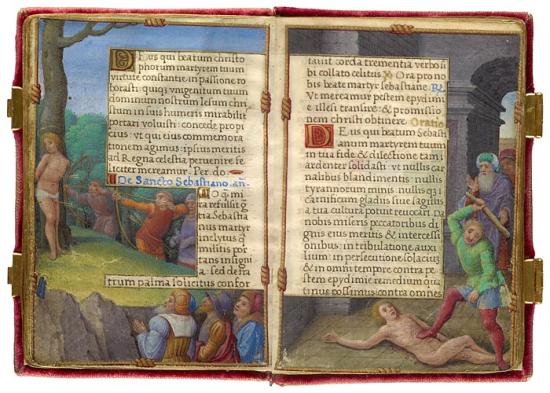 Deus qui beatum christo
phorum martyrem tuum
virtute constantie in passione ro
borasti: quiqz vnigenitum tuum
dominum nostrum Iesum chri
stum in suis humeris mirabilit
portari voluisti: concede propi
cius vt qui eius commemorati
onem agimus: ipsius meritis
ad Regna celestia peruenire fe
liciter mereamur. Per do
De Sancto Sebastiano. añ
O qm
ira refulsit g
tia Sebastia
nus martyr
inclytus qͥ
militis por
tans insigni
a. sed de fra
trum palma solicitus confor
tauit corda trementia verbo si
bi collato celitus. Ora pro no
bis beate martyr sebastiane. R.
Vt mereamur pestem epydimie
e illesi transire & promissio
nem christi obtinere. Oratio
Deus qui beatum Sebasti
anum martyrem tuum in
tua fide & dilectione tam
ardenter solidasti: vt nullis car
nalibus blandimentis: nullis
tyrannorum minis: nullis qͥ
carnificum gladiis siue sagittis
a tua cultura potuit reuocari. Da
nobis miseris peccatoribus di
gnis eius meritis & intercessi
onibus: in tribulatione auxi
lium: in persecutione solacium
& in omni tempore contra pe
stem epydimie remedium qua
tinus possimus: contra omnes